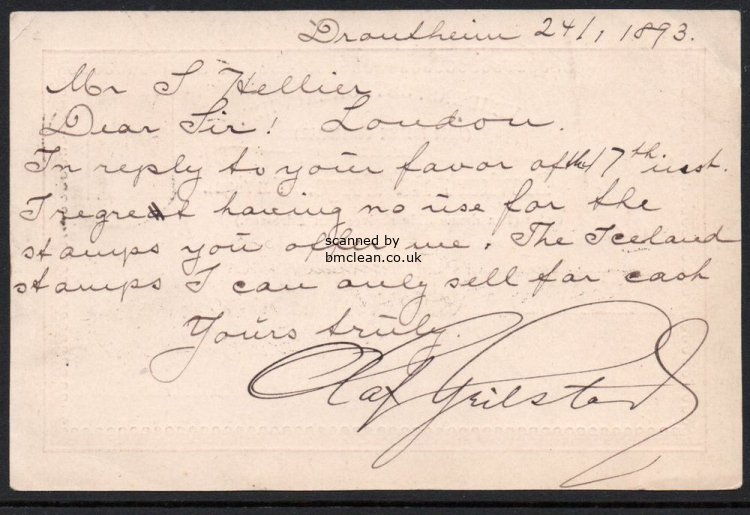 Drontheim 24/1 1893.
Mr S Hellier
Dear Sir! London.
In reply to your favor of the 17th inst.
I regret having no use for the
stamps you offer me. The Iceland
stamps I can only sell for cash
Yours truly
Olaf Grilstad
scanned by
bmclean.co.uk